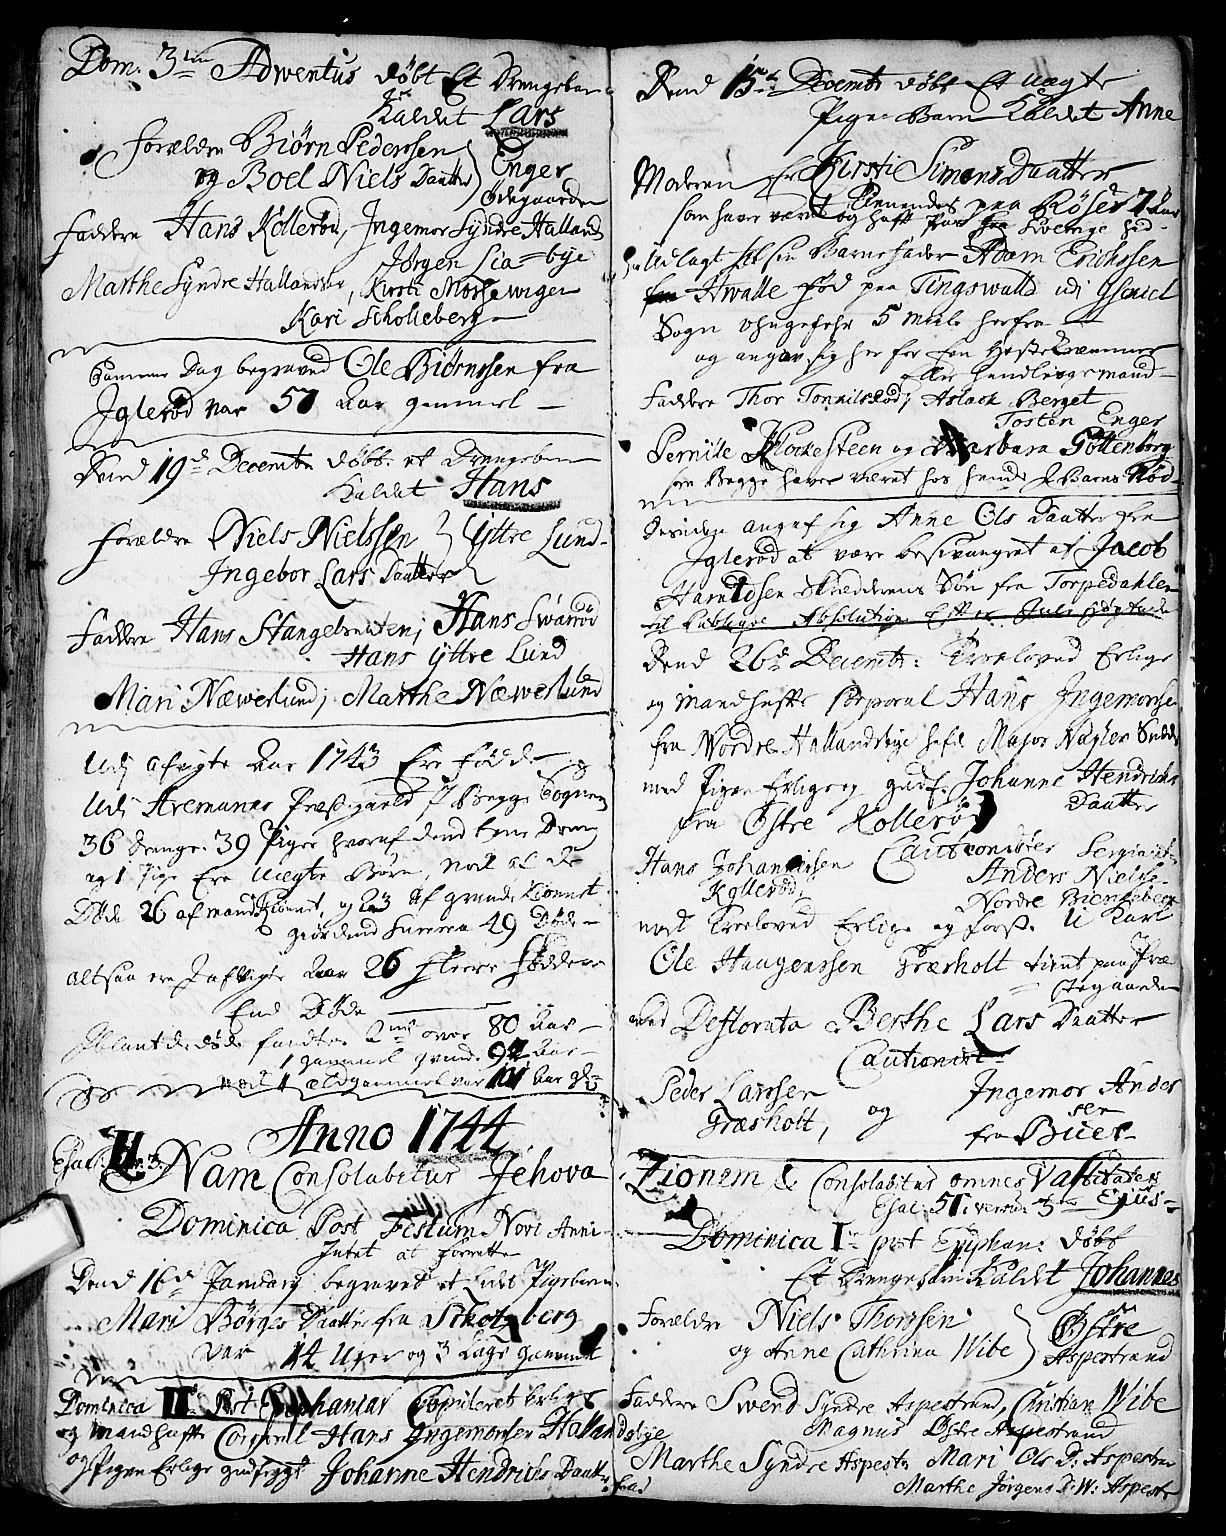 Dom. 3tia Adwentus døbt Et Drengebarn
Kaldet Lars
Forældre Biørn Pederssen
og Boel Niels Daatter Enger
Ødegaarden
Faddere Hans Kollerød, Ingemor Syndre Hallands
Jørgen Lia = bye
Marthe Syndre Hallandsby, Kirsti Mossewigen
Kari Scholleberg
Samme Dag begraved Ole Biørnssen fra
Iglerød var 57 Aar gammel
Dend 19de Decembr døbt et Drengebarn
Kaldet Hans
Forældre Niels Nielssen Yttre Lund
Ingebor Lars Daatter
Faddere Hans Stangebraaten; Hans Swarød
Hans Yttre Lund
Mari Næwerlund; Marthe Næwerlund
Udj afvigte Aar 1743 Ere fødde
Udj Aremanes Præstegield J Begge Sogner
36 Drenge. 39 Piger hvoraf dend Eene Dreng
og 1 Pige Ere Uægte Børn, Nok at de
Døde 26 af mandkiønnet, og 23 af qvindekiønnet
giørdend Summa 49 Døde
altsaa ere J afvigte Aar 26 fleere fødde
End Døde
Iblant de døde fandtes 2de over 80 Aar
1 gammel qvinde 92 Aar
nok 1 ældgammel var 101 Aar
Anno 1744
Esai: 51 v. 3. Nam Consolabitur Jehova
Dominica Post Festum Novi Anni
Intet at forrette
Dend 16de Januarj begravet et lidet Pigebarn
Mari Børges Daatter fra Skotzberg
var 14 Uger og 3 Dage gammel
Dominica IIda Post Epiphanias Copuleret Erlige
og Mandhafte Corporal Hans Ingemorsen Hallandsbye
og Pigen Erlige gudfrygt Johanne Hendrichs Daatter
Dend 15de Decembr døbt Et uægte
Pige Barn Kaldet Anne
Moderen Er Kirstie Simens Daatter
som haver været Tienendes paa Røser 7 Aar
og haft
Udlagt til sin Barnefader Adam Erichssen
Awalle fød paa Tingswalld udi
Sogn ohngefehr 5 Miile herfra
og angav sig her for Een Hestekræmmer
Eller handlingsmand
Faddere Thor Tonnilsrød; Aslach Berget
Tosten Enger
Pernille Klockesteen og Barbara Gøttenborg
som Begge haver været hos hende J Barns Nød
Desuden angaf sig Anne Ols Daatter fra
Iglerød at være besvangret af Jacob
Haraldsen Skredderens Søn fra Torpedahlen
til Publique Absolution Efter
Dend 26de Decembr: Troeloved Erlige
og Mandhafte Corporal Hans Ingemorsen
fra Nordre Hallandsbye
med Pigen Erlige og gudf. Johanne Hendrichs
Daatter
fra Østre Kollerød
Hans Johannissen Cautionister Sergiant
Kollerød; Anders Nielsen
Nordre Bienkebech
nock Troeloved Erlige og forst. U Karl
Ole Haugenssen Græsholt tient paa Præ
stegaarden
med Deflorata Berthe Lars Daatter
Cautionist
Peder Larssen Ingemor Ander
Græsholt, og sen
fra Büer
Zionem & Consolabitur omnes Vastitates
Esai. 51. vers. 3 Ejus
Dominica Ima post Epiphan: døbt
Et Drengebarn Kaldet Johannes
Forældre Niels Thorssen Østre
og Anne Cathrina Wibe Aspestrand
Faddere Swend Syndre Aspestrand, Christian Wibe
Magnus Østre Aspestrand
Marthe Syndre Aspestr: Mari Ols D: Aspestran
Marthe Jørgens D: W: Aspestr